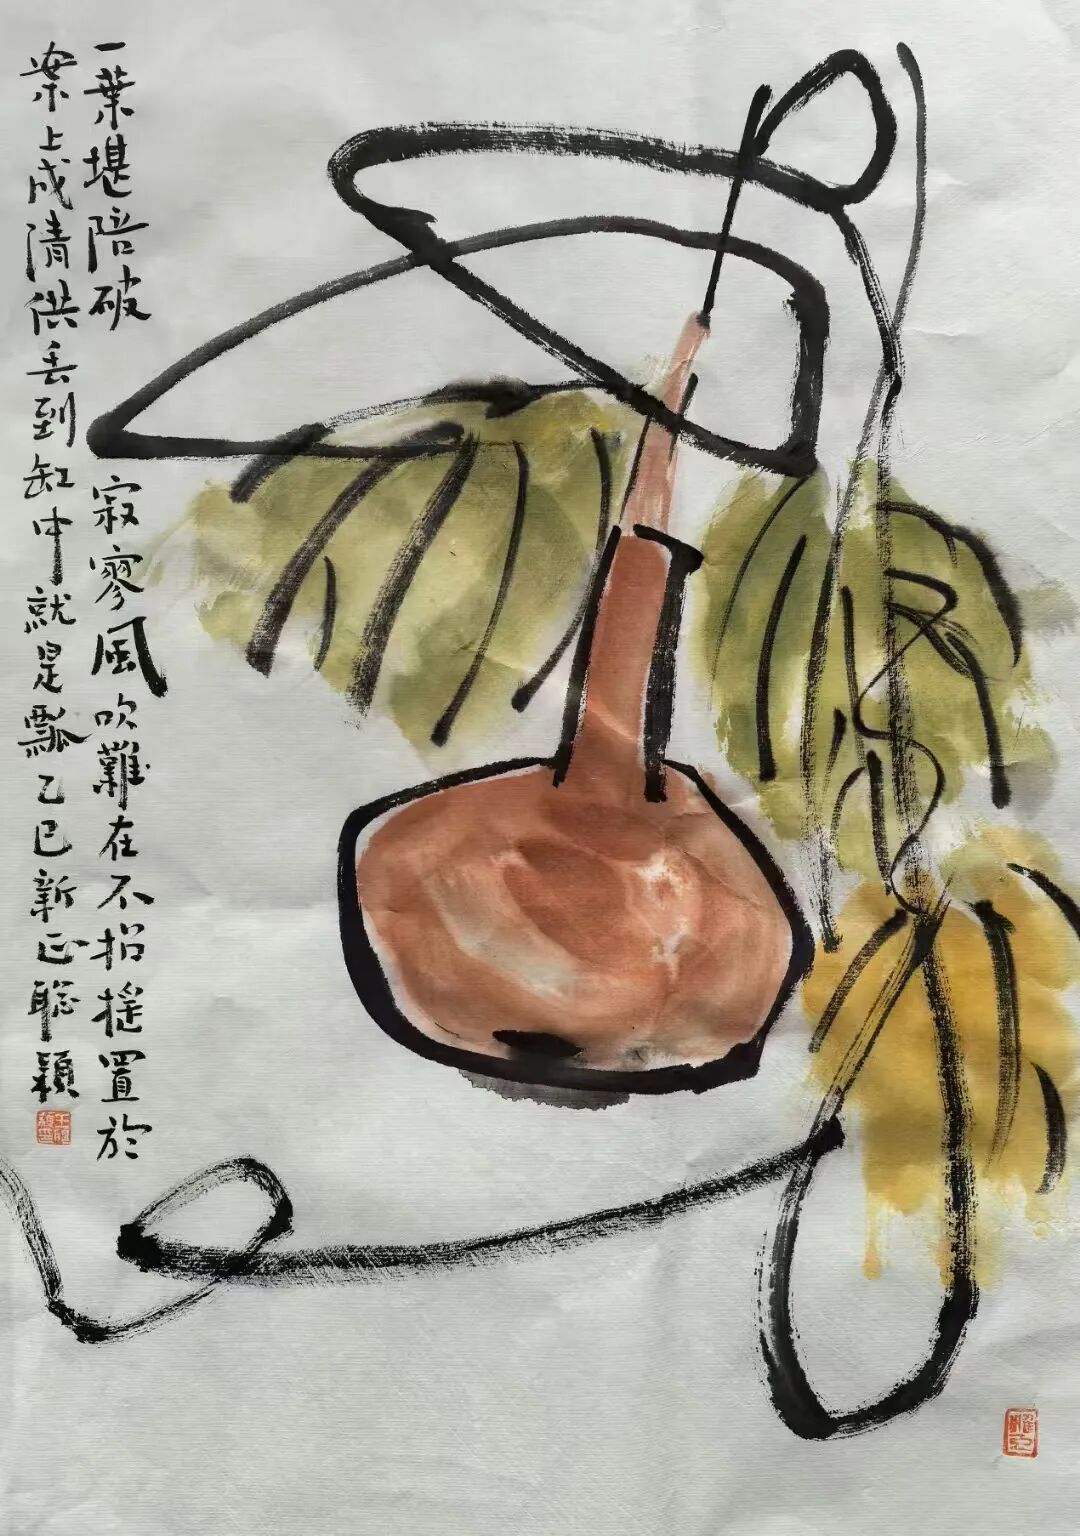 一葉堪陪破 寂寥風吹難在不招摇置於
案上成清供丢到缸中就是瓢乙巳新正聪颖